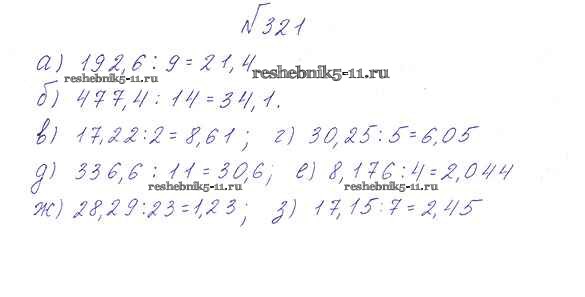 №321
а) 192,6 : 9 = 21,4
reshebnik5-11.ru reshebnik5-11.ru
б) 477,4 : 14 = 34,1.
в) 17,22 : 2 = 8,61 ; г) 30,25 : 5 = 6,05
д) 336,6 : 11 = 30,6; е) 8,176 : 4 = 2,044
reshebnik5-11.ru reshebnik5-11.ru
ж) 28,29 : 23 = 1,23 ; з) 17,15 : 7 = 2,45